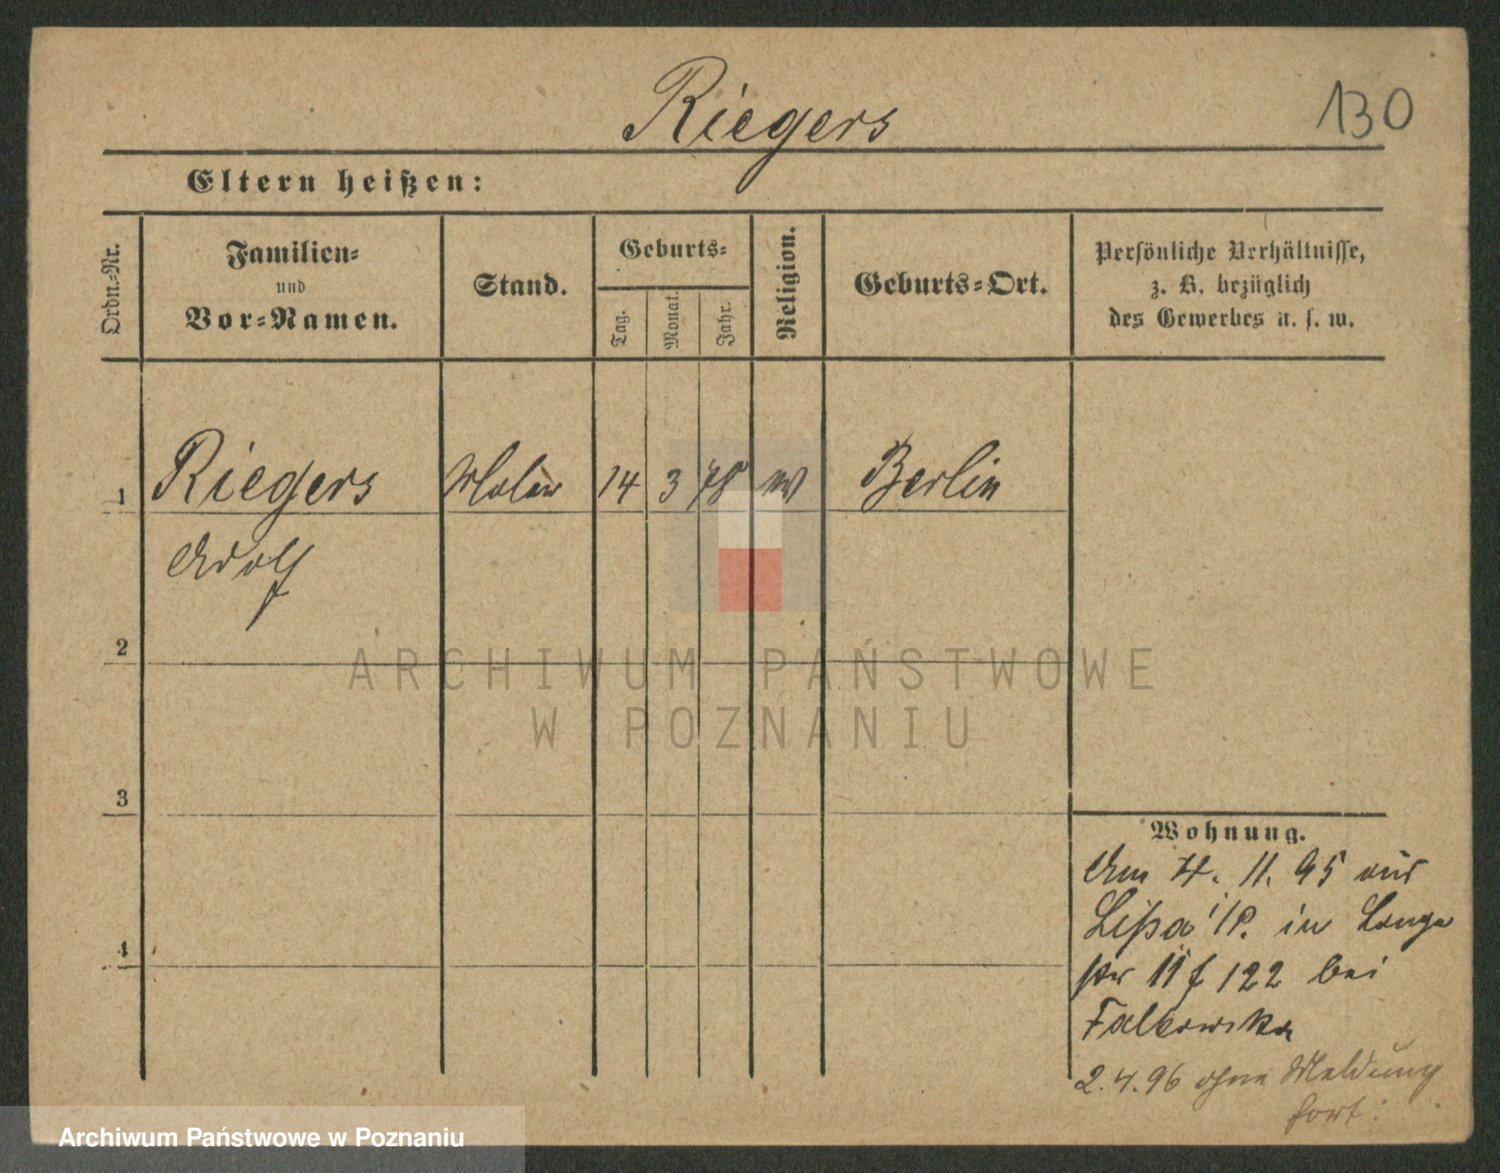 Riegers
130
Eltern heißen:
Ordn.-Nr.
Familien-
und
Vor-Namen.
Stand.
Geburts-
Tag.
Monat.
Jahr.
Religion.
Geburts-Ort.
Persönliche Verhältnisse,
z. B. bezüglich
des Gewerbes u. s. w.
1 Riegers Maler 14 3 78 Berlin
Adolf
2
3
4
Wohnung.
Am 4. 11. 95 aus
Lissa i/P. in Lange
str 11 f 122 bei
Falkowska
2.4.96 ohne Meldung
fort.
ARCHIWUM PAŃSTWOWE
W POZNANIU
Archiwum Państwowe w Poznaniu